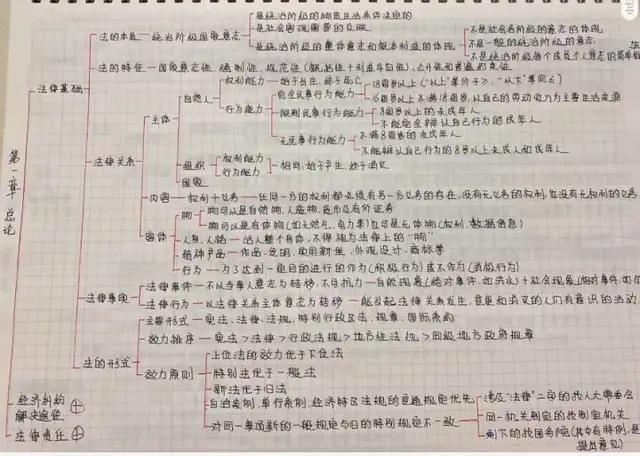 是统治阶级的物质生活条件决定的
是社会客观需要的反映
法的本质 统治阶级国家意志
是统治阶级的整体意志和根本利益的体现
不是社会各阶级的意志的体现
不是一般的统治阶级的意志
不是统治阶级每个成员个人意志的简单相加
法的特征 国家意志性、强制性、规范性(概括性+利益导向性)、公开和普遍约束性
法律基础
权利能力 始于出生,终于死亡
18周岁以上("以上"等价于≥,"以下"等同≤)
完全民事行为能力
16周岁以上不满18周岁,以自己的劳动收入为主要生活来源
自然人
主体
行为能力
限制民事行为能力
8周岁以上的未成年人
不能完全辨认自己行为的成年人
无民事行为能力
不满8周岁的未成年人
不能辨认自己行为的8岁以上未成人和成年人
法律关系
组织
权利能力
行为能力
相同,始于产生,终于消灭
国家
第一章 总论
内容 权利+义务 任何一方的权利都必须有另一方义务的存在,没有无义务的权利,也没有无权利的义务
客体
物
物可以是自然物、人造物、货币及有价证券
物可以是有体物(如天然气、电力等)也可是无体物(权利、数据信息)
人身、人格 活人整个身体,不得视为法律上的"物"
精神产品 作品、发明、实用新型、外观设计、商标等
行为 为了达到一定目的进行的作为(积极行为)或不作为(消极行为)
法律事实
法律事件 不以当事人意志为转移,不可抗力:自然现象(绝对事件,如洪水)+社会现象(相对事件,如
法律行为 以法律关系主体意志为转移 能引起法律关系发生、变更和消灭的人们有意识的活动
法的形式
主要形式 宪法、法律、法规、特别行政区法、规章、国际条约
效力排序 宪法>法律>行政法规>地方性法规>同级地方政府规章
效力原则
上位法的效力优于下位法
特别法优于一般法
新法优于旧法
自治条例、单行条例、经济特区法规的变通规定优先
对同一事项新的一般规定与旧的特别规定不一致
涉及"法律"二字的找人大常委会
同一机关制定的找制定机关
剩下的找国务院(其中有特例,是
提出意见)
经济纠纷解决途径 +
法律责任 +